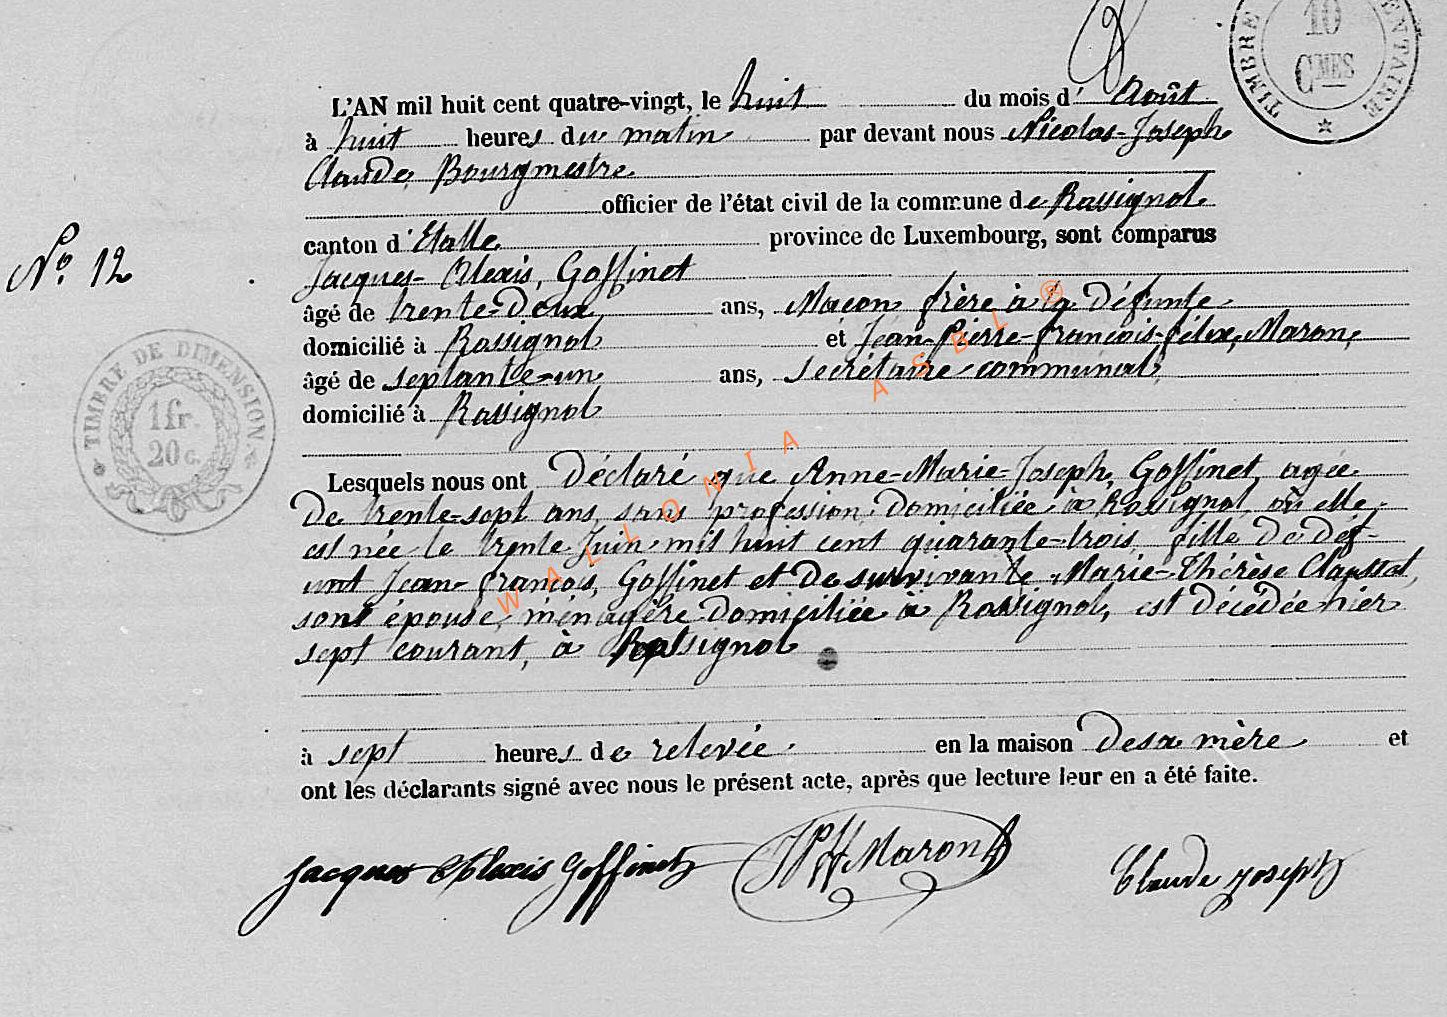 TIMBRE
10
CMES
L'AN mil huit cent quatre-vingt, le huit du mois d' Août
à huit heures du matin par devant nous Nicolas-Joseph
Claude, Bourgmestre
officier de l'état civil de la commune de Rossignol
canton d'Etalle province de Luxembourg, sont comparus
N° 12
Jacques-Alexis, Goffinet
âgé de trente-deux ans, Maçon, frère à la défunte
domicilié à Rossignol et Jean-Pierre-François-Félix, Maron,
âgé de septante-un ans, secrétaire communal,
domicilié à Rossignol
TIMBRE DE DIMENSION.
1 fr.
20 c.
Lesquels nous ont Déclaré que Anne-Marie-Joseph, Goffinet, agée
De trente-sept ans, sans profession, domiciliée à Rossignol où elle
est née le trente Juin mil huit cent quarante-trois, fille de déf-
unt Jean-François, Goffinet et de survivante Marie-Thérèse
sont épouse, ménagère domiciliée à Rossignol, est décédée hier
sept courant, à Rossignol
à sept heures de relevée en la maison de sa mère et
ont les déclarants signé avec nous le présent acte, après que lecture leur en a été faite.
Jacques Alexis Goffinet Maron Claude Joseph
WALLONIA ASBL ®